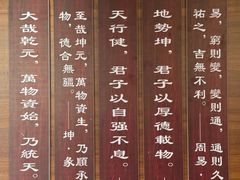 易，窮則變，變則通，通則久
祐之，吉無不利。——周易·
地勢坤，君子以厚德載物。
天行健，君子以自强不息。
至哉坤元，萬物資生，乃順承
物，德合無疆。——坤·彖
大哉乾元，萬物資始，乃統天。